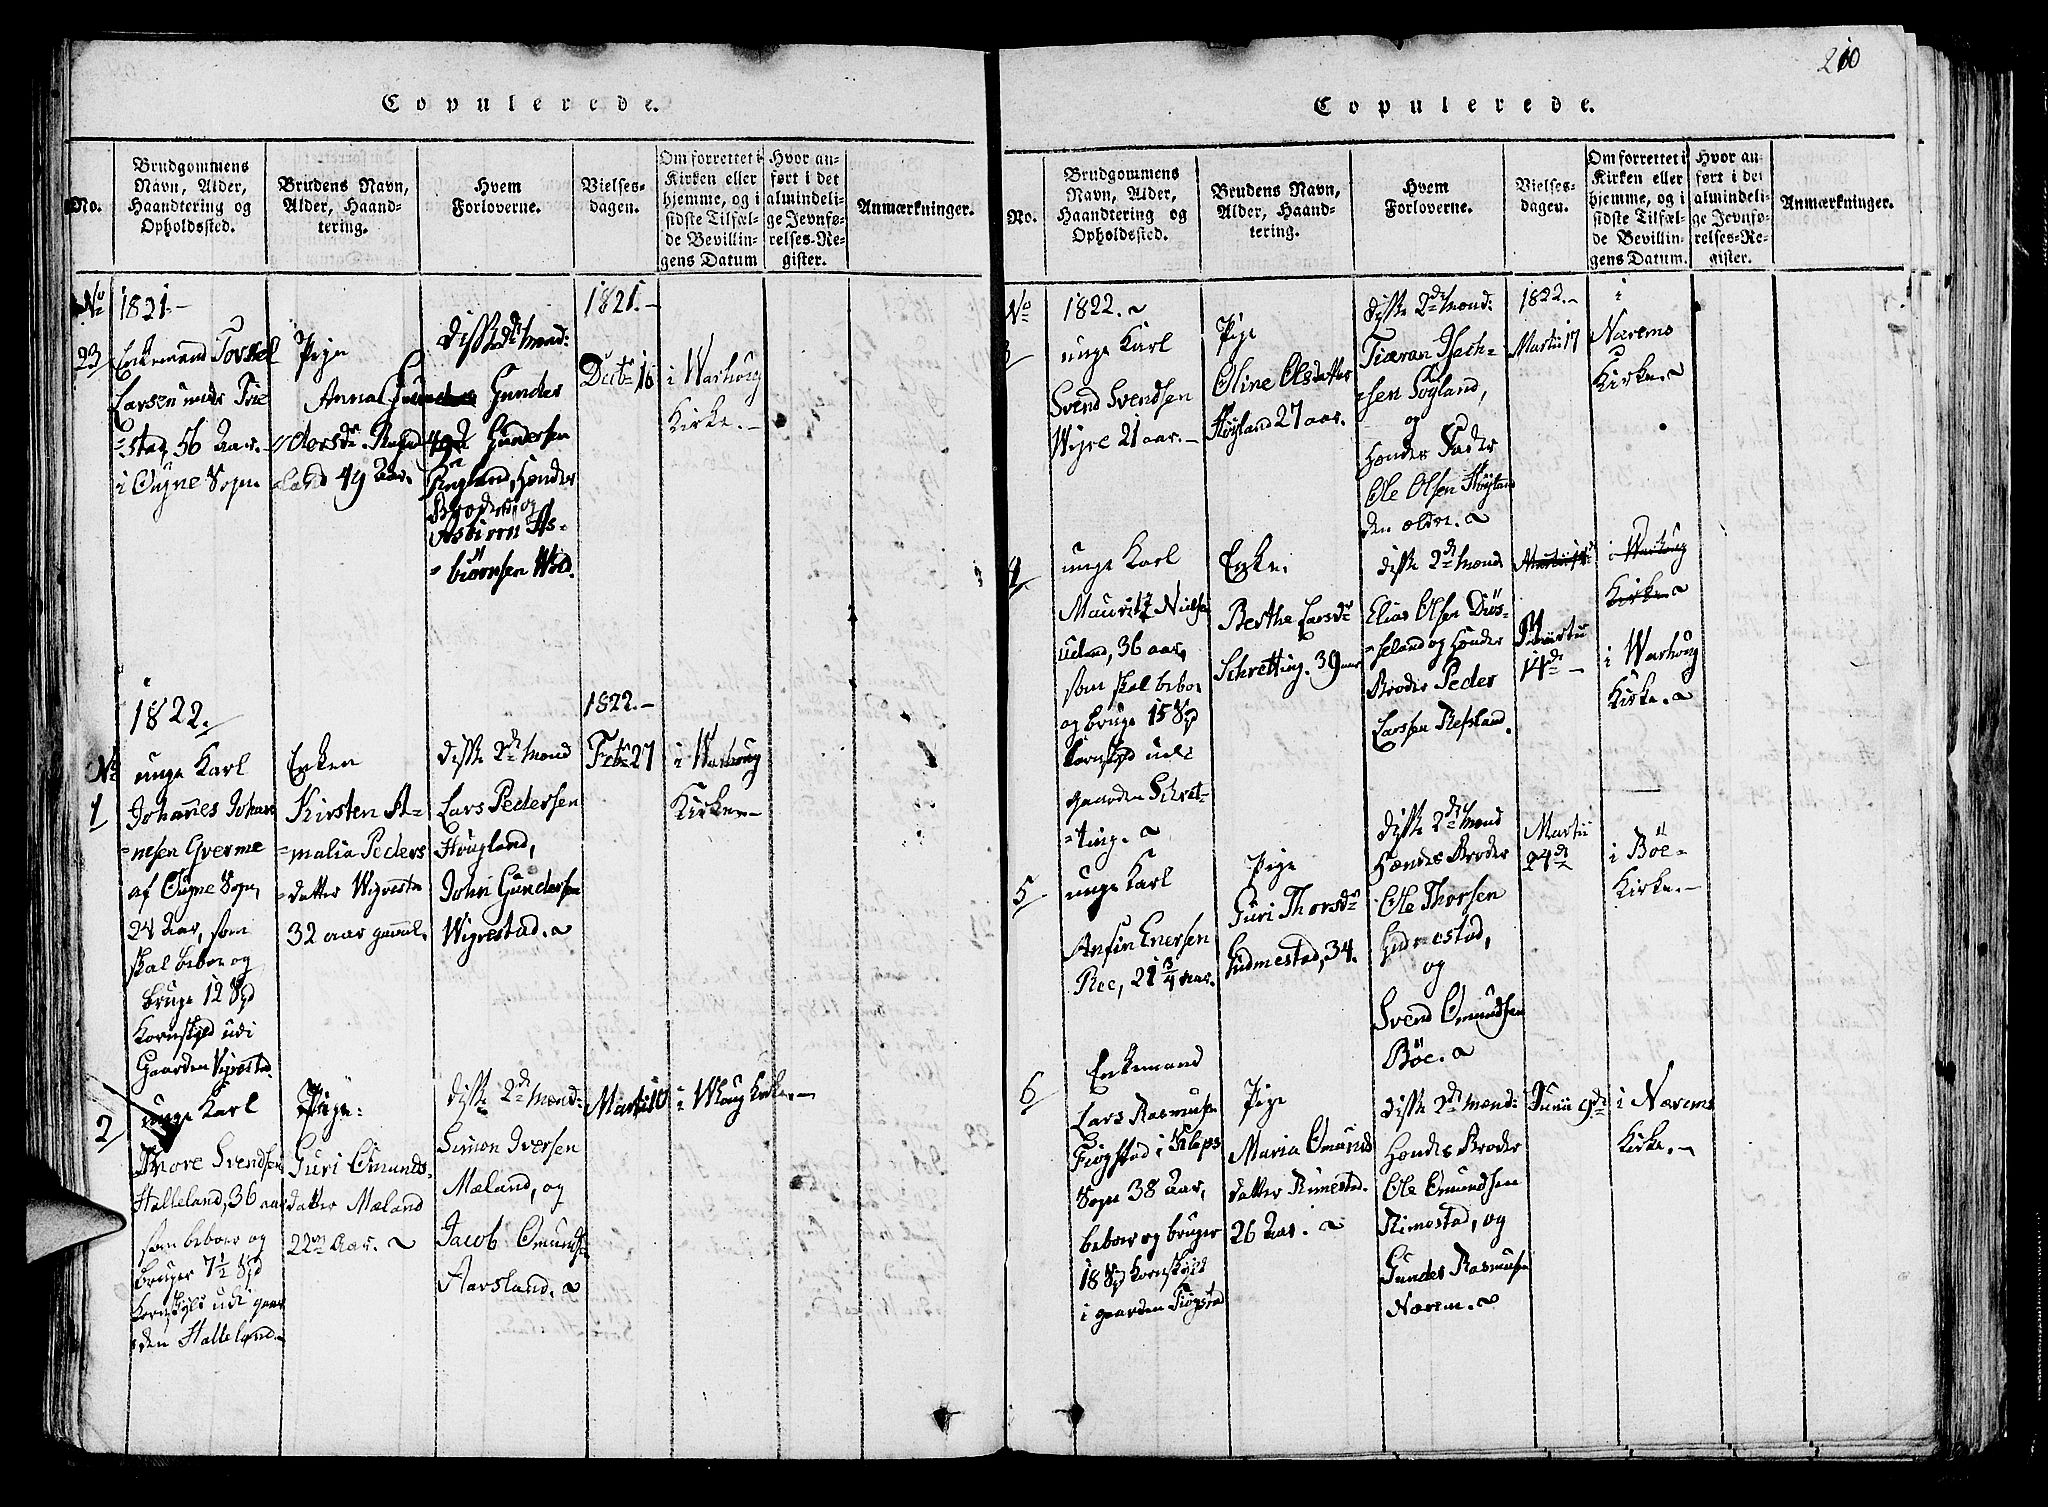 Copulerede.
No.
Brudgommens
Navn, Alder,
Haandtering og
Opholdssted.
Brudens Navn,
Alder, Haand-
tering.
Hvem
Forloverne.
Vielses-
dagen.
Om forrettet i
Kirken eller
hjemme, og i
sidste Tilfæl-
de Bevillin-
gens Datum
Hvor an-
ført i det
almindeli-
ge Jevnfø-
relses-Re-
gister.
Anmærkninger.
No
1821.-
23
Enkemand
Larsen
=stad, 56 Aar.
i Ougne Sogn
Pige
Anna Gunder
=dersdr.
land 49 Aar.
Disse 2de Mænd:
Gunder
Gundersen
Rogland, hendes
Broder, og
Asbiørn As-
=biørnsen
1821.-
Decbr 16
i Warhoug
Kirke.-
1822.
No
1
unge Karl
Johannes Johan
=nesen Qverme
af Ougne Sogn,
24 Aar, som
skal beboe og
bruge 12 Spd
Kornskyld udi
Gaarden Vigrestad.
Enken
Kirsten A-
=malia Peders
=datter Wigrestad
32 aar gammel.
disse 2de Mænd
Lars Pedersen
Høugland,
John Gundersen
Wigrestad.
1822.-
Febr 27
i Warhoug
Kirke.-
2
unge Karl
Thore Svendsen
Halleland, 36 aar
som beboer og
bruger 7½ Spd
Kornskyld udi gaar
=den Halleland.
Pige:
Guri Omunds-
datter Mæland
22 Aar.
disse 2de Mænd:
Simon Iversen
Mæland, og
Jacob Omunds.
Aarsland.
Martii 10
i Whoug Kirke.-
210
Copulerede.
No.
Brudgommens
Navn, Alder,
Haandtering og
Opholdssted.
Brudens Navn,
Alder, Haand-
tering.
Hvem
Forloverne.
Vielses-
dagen.
Om forrettet i
Kirken eller
hjemme, og i
sidste Tilfæl-
de Bevillin-
gens Datum.
Hvor an-
ført i det
almindeli-
ge Jevnfø-
relses-Re-
gister.
Anmærkninger.
No
3
1822.
unge Karl
Svend Svendsen
Wigre 21 aar.-
Pige
Oline Olsdatter
Høyland 27 aar.
disse 2de Mænd:
Tiæran Isach-
=sen Søyland,
og
hendes Fader
Ole Olsen Høyland
den ældre.
1822.-
Martii 17
i
Nærems
Kirke.
4
unge Karl
Mauritz Nielsen
Ueland, 36 aar,
som skal beboe
og bruge 15 Spd
Kornskyld udi
gaarden Schret-
=ting.
Enke.
Berthe Larsdr
Schretting. 39 aar
disse 2de Mænd
Elias Olsen Dus-
=seland og hendes
Broder Peder
Larsen Refsland.
Martii 14de
i Warhoug
Kirke.
Martii
14de -
i Warhoug
Kirke.
5
unge Karl
Anfin Enersen
Ree, 21 3/4 aar.
Pige
Guri Thorsdr
Gudmestad, 34.
disse 2de Mænd
hendes Broder
Ole Thorsen
Gudmestad,
og
Svend Omundsen
Böe.
Martii
24de
i Böe-
Kirke.-
6
Enkemand
Lars Rasmusen
Fiogstad i Kleps
Sogn 38 Aar,
beboer og bruger
18 Spd Kornskyld
i gaarden Fiogstad
Pige
Maria Omunds
datter Rimestad.
26 Aar.
disse 2de Mænd:
hendes Broder
Ole Omundsen
Rimestad, og
Gunder Rasmusen
Nærem.
Junii 9de
i Nærems
Kirke.-